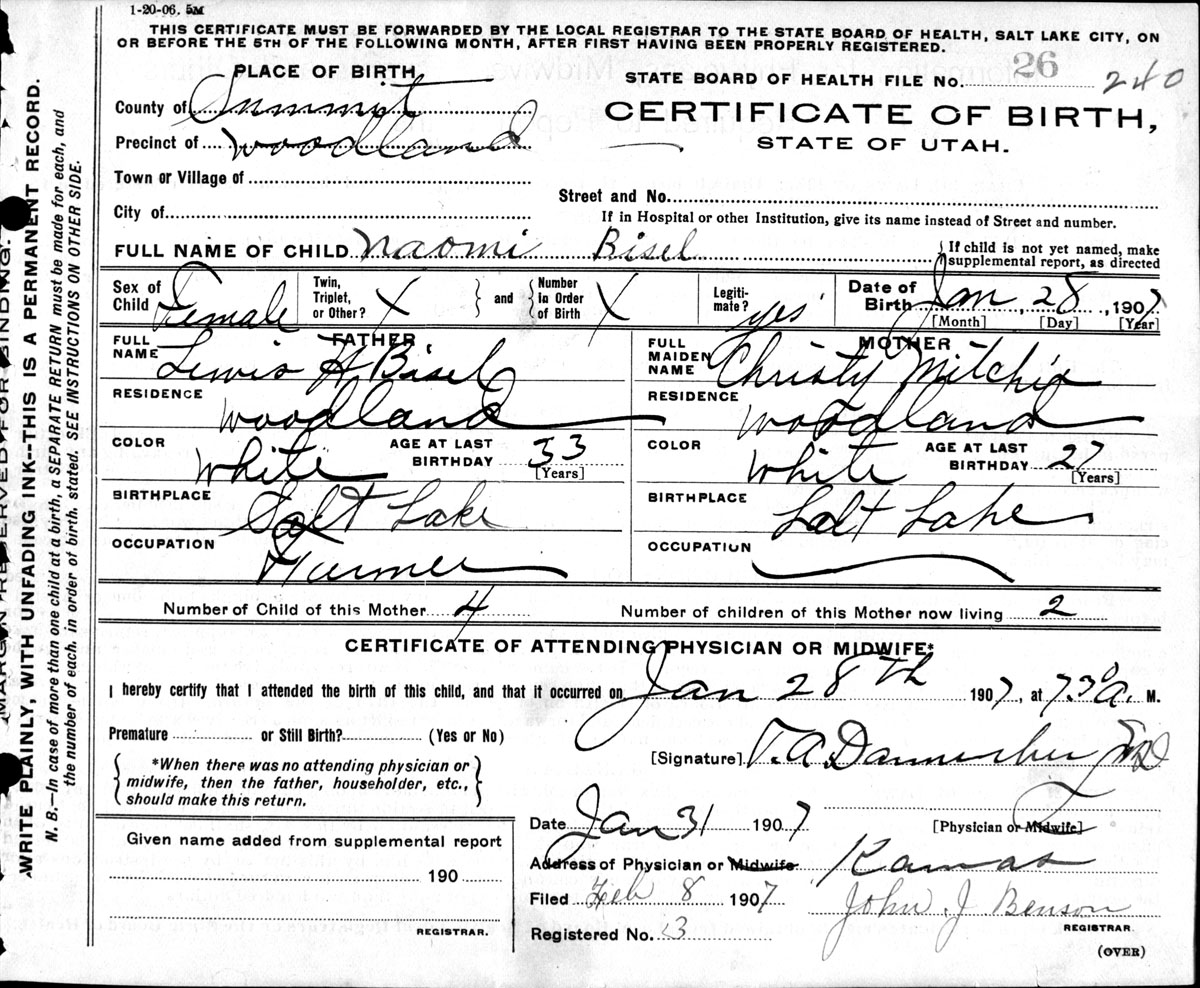 1-20-06. 5M
THIS CERTIFICATE MUST BE FORWARDED BY THE LOCAL REGISTRAR TO THE STATE BOARD OF HEALTH, SALT LAKE CITY, ON
OR BEFORE THE 5TH OF THE FOLLOWING MONTH, AFTER FIRST HAVING BEEN PROPERLY REGISTERED.
PLACE OF BIRTH
STATE BOARD OF HEALTH FILE NO. 26 240
County of Summit
CERTIFICATE OF BIRTH,
Precinct of Woodland
STATE OF UTAH.
Town or Village of
Street and No.
City of
If in Hospital or other Institution, give its name instead of Street and number.
FULL NAME OF CHILD Naomi Bisel
If child is not yet named, make
supplemental report, as directed
Sex of Child Female
Twin, Triplet, or Other? X and Number In Order of Birth X
Legiti-mate? yes
Date of Birth Jan, 28, 1907
[Month] [Day] [Year]
FATHER
MOTHER
FULL NAME Lewis H Bisel
FULL MAIDEN NAME Christy
RESIDENCE Woodland
RESIDENCE Woodland
COLOR White AGE AT LAST BIRTHDAY 33 [Years]
COLOR White AGE AT LAST BIRTHDAY 27 [Years]
BIRTHPLACE Salt Lake
BIRTHPLACE Salt Lake
OCCUPATION Farmer
OCCUPATION
Number of Child of this Mother 4
Number of children of this Mother now living 2
CERTIFICATE OF ATTENDING PHYSICIAN OR MIDWIFE*
I hereby certify that I attended the birth of this child, and that it occurred on Jan 28th 1907, at 7.30 a. M.
Premature or Still Birth? (Yes or No)
[Signature] T. A. MD
*When there was no attending physician or
midwife, then the father, householder, etc.,
should make this return.
Date Jan 31 1907
[Physician or Midwife]
Address of Physician or Midwife Kamas
Filed Feb 8 1907 John J Benson
REGISTRAR
Registered No. 3
(OVER)
Given name added from supplemental report
190
REGISTRAR.
MARGIN RESERVED FOR BINDING.
WRITE PLAINLY, WITH UNFADING INK--THIS IS A PERMANENT RECORD.
N. B.—In case of more than one child at a birth, a SEPARATE RETURN must be made for each, and
the number of each, in order of birth, stated. SEE INSTRUCTIONS ON OTHER SIDE.